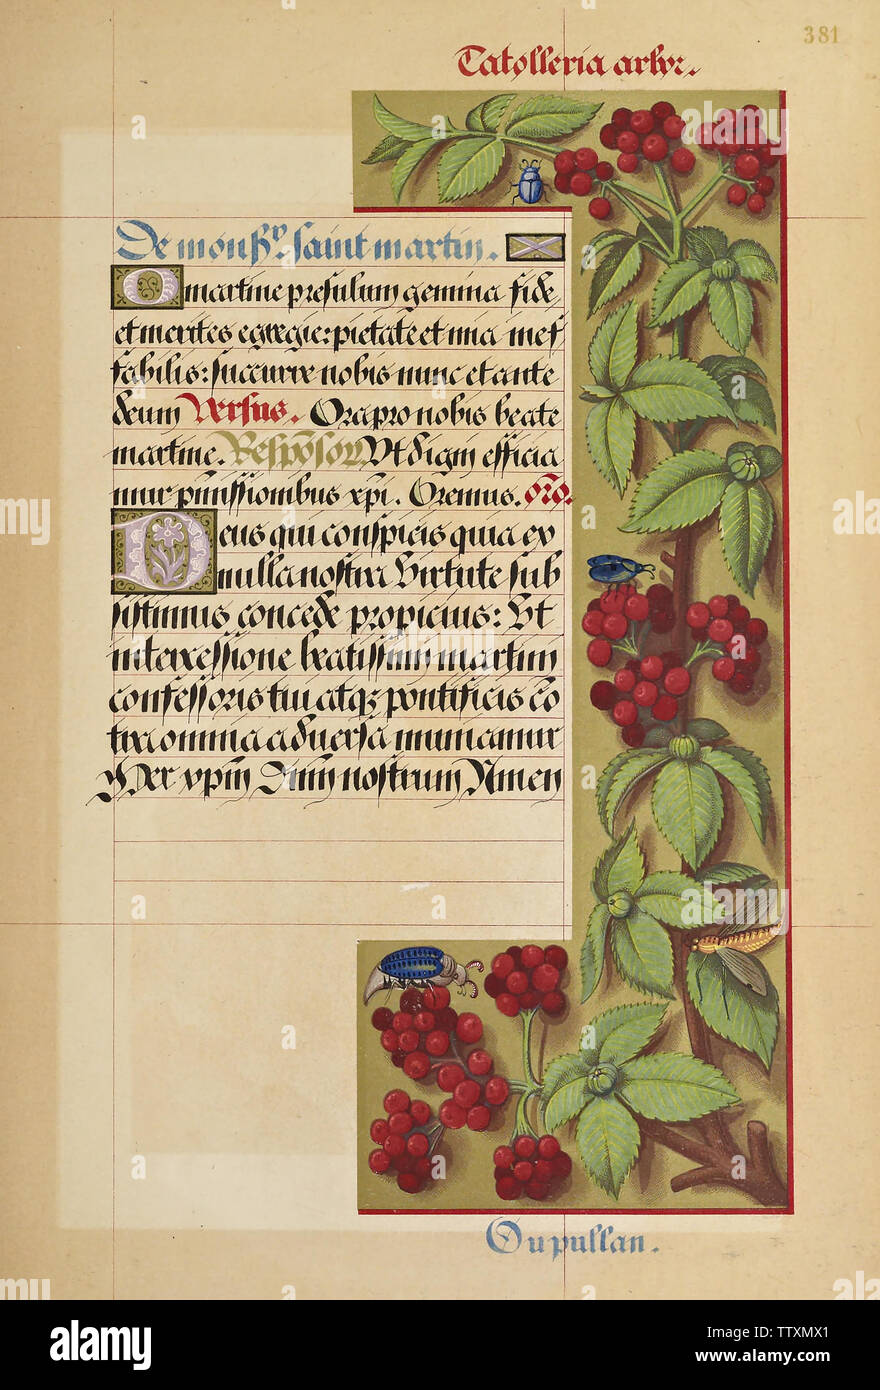 381
Catolleria arbor.
De monsr. saint martin.
O martine presulum gemma fide
et merites egregie: pietate et mia inef
fabilis: succurre nobis nunc et ante
deum Versus. Ora pro nobis beate
martine. Responsor Ut digni efficia
mur pmissionibus xpi. Oremus. oro.
Deus qui conspicis quia ex
nulla nostra virtute sub
sistimus concede propicius: Ut
intercessione beatissimi martini
confessoris tui atqz pontificis cō
tra omnia aduersa muniamur
Per xpm Dnm nostrum Amen
Oupullan.
alamy
Image ID: TTXMX1
www.alamy.com